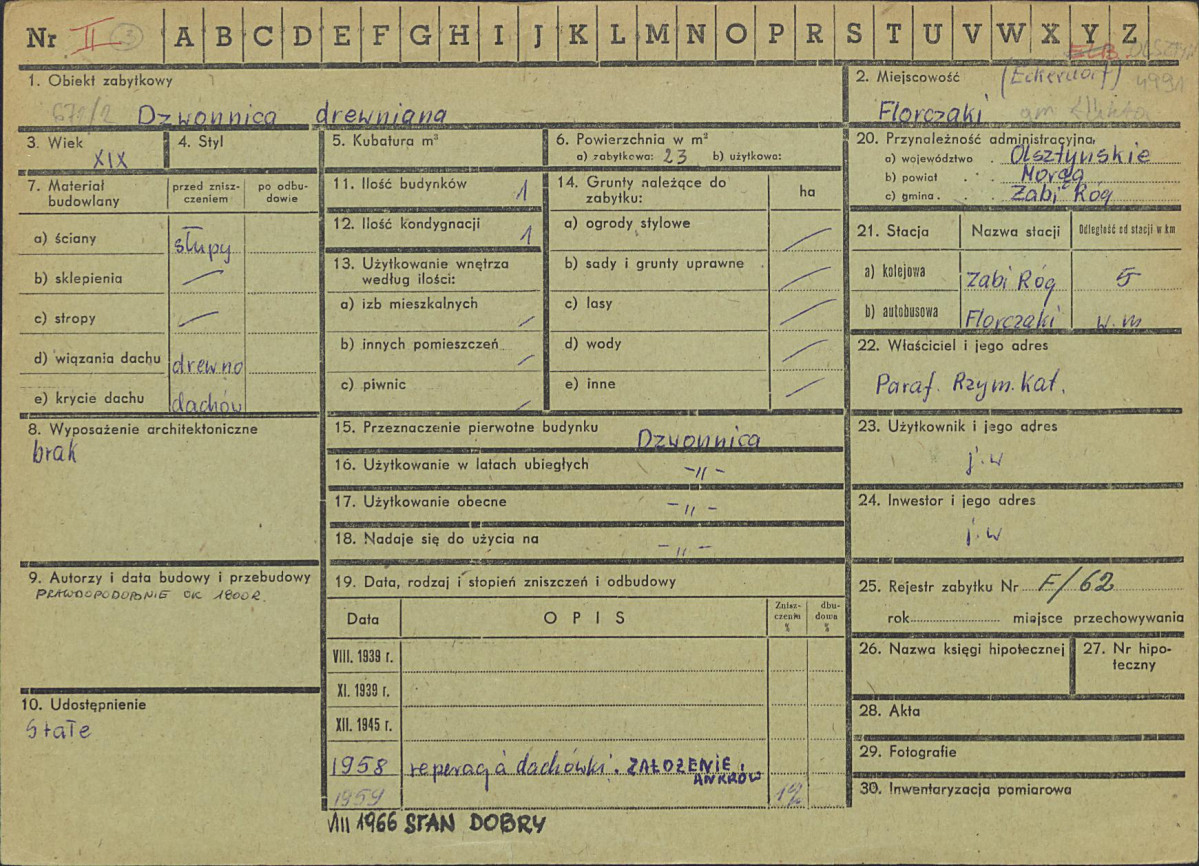 Nr II 3 A B C D E F G H I J K L M N O P R S T U V W X Y Z
ELB. OLSZTYN
1. Obiekt zabytkowy
671/2 Dzwonnica drewniana
2. Miejscowość (Eckersdorf) 4991
Florczaki gm. Łukta
3. Wiek
XIX
4. Styl
5. Kubatura m³
6. Powierzchnia w m²
a) zabytkowa: 23 b) użytkowa:
7. Materiał budowlany
przed znisz-
czeniem
po odbu-
dowie
a) ściany słupy
b) sklepienia
c) stropy
d) wiązania dachu drewno
e) krycie dachu dachów
8. Wyposażenie architektoniczne
brak
9. Autorzy i data budowy i przebudowy
PRAWDOPODOBNIE OK 1800 R.
10. Udostępnienie
Stałe
11. Ilość budynków 1
12. Ilość kondygnacji 1
13. Użytkowanie wnętrza
według ilości:
a) izb mieszkalnych
b) innych pomieszczeń
c) piwnic
14. Grunty należące do
zabytku:
ha
a) ogrody stylowe
b) sady i grunty uprawne
c) lasy
d) wody
e) inne
15. Przeznaczenie pierwotne budynku Dzwonnica
16. Użytkowanie w latach ubiegłych -"-
17. Użytkowanie obecne -"-
18. Nadaje się do użycia na -"-
19. Data, rodzaj i stopień zniszczeń i odbudowy
Data
OPIS
Znisz-
czenia
%
dbu-
dowa
%
VIII. 1939 r.
XI. 1939 r.
XII. 1945 r.
1958 reperacja dachówki. ZAŁOŻENIE
ANKRÓW
1959
VIII 1966 STAN DOBRY
20. Przynależność administracyjna
a) województwo Olsztyńskie
b) powiat Morąg
c) gmina Żabi Róg
21. Stacja
Nazwa stacji
Odległość od stacji w km
a) kolejowa Żabi Róg 5
b) autobusowa Florczaki w. m
22. Właściciel i jego adres
Paraf. Rzym. Kat.
23. Użytkownik i jego adres
j. w
24. Inwestor i jego adres
j. w
25. Rejestr zabytku Nr F/62
rok miejsce przechowywania
26. Nazwa księgi hipotecznej
27. Nr hipo-
teczny
28. Akta
29. Fotografie
30. Inwentaryzacja pomiarowa